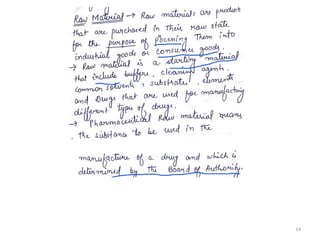 Raw Material → Raw materials are product
that are purchased in their raw state
for the purpose of processing Them into
industrial goods or consumer goods.
→ Raw material is a starting material
that include buffers, cleaning agents.
common solvents, substrates, elements
and Drugs that are used for manufacturing
different types of drugs.
→ Pharmaceutical Raw material means
. the substance to be used in the
manufacture of a drug and which is
determined by the Board of Authority.
14